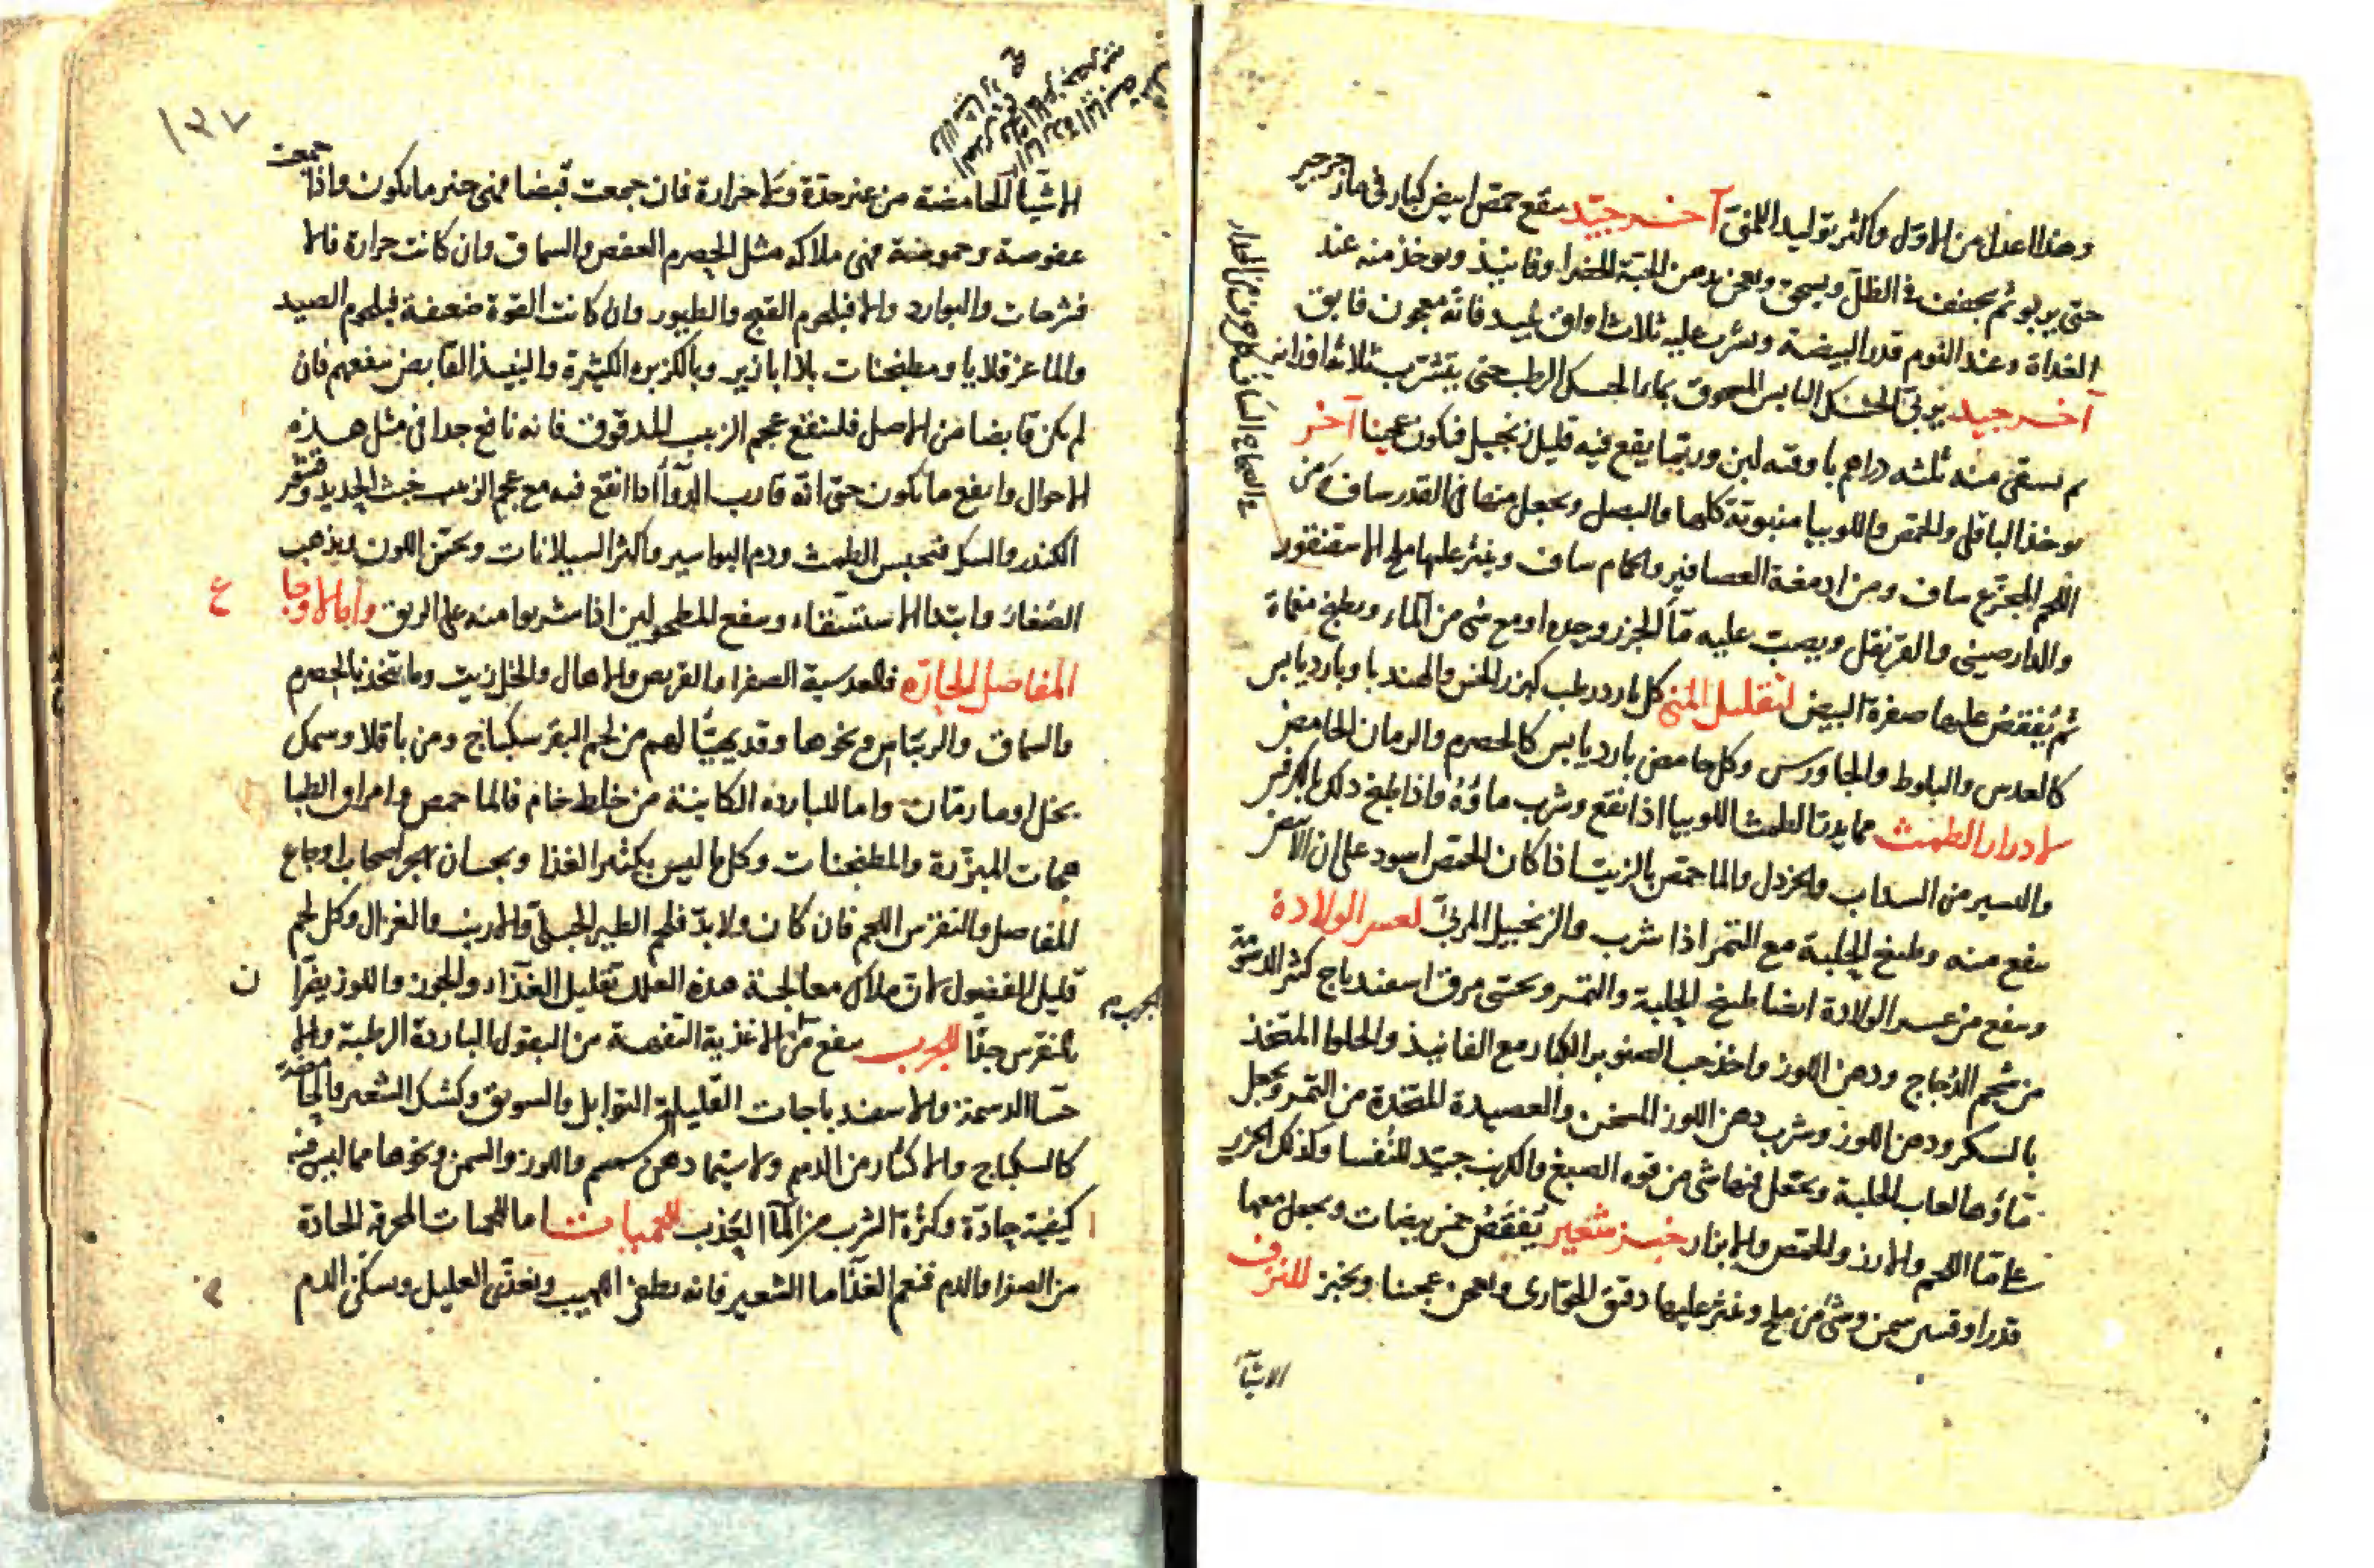 وهذا اعدل من الاول واكثر توليدا للمنى آخر جيد ينقع حمص ابيض كبار فى ماء جرجير
حتى يربو ثم يجفف فى الظل ويسحق ويعجن بدهن الحبة الخضرا وفانيذ ويوخذ منه عند
الغداة وعند النوم قدر البيضة ويشرب عليه ثلاث اواق نبيد فانه معجون فايق
آخر جيد يربى الحسك اليابس المسحوق بماء الحسك الرطب حتى يتشرب ثلاثة اوزانه
ثم يسقى منه ثلثه دراهم باوقيه لبن وربما يقع فيه قليل زنجبيل فيكون عجيبا آخر
يوخذ الباقلى والحمص واللوبيا منبوتة كلها والبصل ويجعل منها فى القدر ساف ومن
اللحم المجزع ساف ومن ادمغة العصافير والحمام ساف وينثر عليها ملح الاسقنقور
والدارصينى والقرنفل ويصب عليه ماء الجزر وحده او مع شى من الماء ويطبخ
ثم يفقص عليها صفرة البيض لتقليل المنى كل بارد رطب كبزر الخس والهندبا وبارد يابس
كالعدس والبلوط والجاورس وكل حامض بارد يابس كالحصرم والرمان الحامض
لادرار الطمث مما يدر الطمث اللوبيا اذا نقع وشرب ماؤه واذا طبخ
واليسير من السداب والخردل والماحمص بالزيت اذا كان الحمص اسود على ان الابيض
ينفع منه وطبيخ الحلبة مع التمر اذا شرب والزنجبيل المربى لعسر الولادة
وينفع من عسر الولادة ايضا طبيخ الحلبة والتمر وتحسى مرق اسفندباج كثير الدسومة
من شحم الدجاج ودهن اللوز واخذ حب الصنوبر الكبار مع الفانيذ والحلوا المتخذ
بالسكر ودهن اللوز وشرب دهن اللوز المسخن والعصيدة المتخذة من التمر ويجعل
ماؤها لعاب الحلبة ويجعل فيها شى من قوه الصبغ والكرنب جيد للنفسا وكذلك الحرير
على ماء اللحم والارز والحمص والابزار خبز شعير يفقص خمس بيضات ويجعل معها
قدر اوقيتين سمن وشئ من ملح وينثر عليها دقيق الحوارى واعجن عجينا ويخبز للنزف
الاشيآ
١٣٧
الاشيآ الحامضة من غير حدة ولا حرارة فان جمعت قبضا فهى خير ما يكون واذا جمعت
عفوصة وحموضة فهى ملاكه مثل الحصرم العفص والسماق وان كانت حرارة فالا
والبوارد والا فبلحوم القبج والطيور وان كانت القوة ضعيفة فبلحوم الصيد
والماعز قلايا ومطبخنات بلا ابازير وبالكزبره الكثيرة والنبيذ القابض ينفعهم فان
لم يكن قابضا من الاصل فلينقع عجم الزبيب المدقوق فانه نافع جدا فى مثل هذه
الاحوال وانفع ما يكون حتى انه قارب الدوآ اذا انقع فيه مع عجم الزبيب خبث الحديد وقشر
الكندر والسك فيحبس الطمث ودم البواسير واكثر السيلانات ويحسن اللون ويذهب
الصفار وابتدا الاستسقاء وينفع المطحولين اذا شربوا منه على الريق واما لاوجاع
المفاصل الحارة فالعدسية الصفرا والقريص والاهال والخل زيت وما يتخذ بالحصرم
والسماق والريباس ونحوها وقد يهيّأ لهم من لحم البقر سكباج ومن باقلا وسمك
بخل او ما رمان واما للبارده الكاينة من خلط خام فالما حمص وامراق الطيا
هجات المبزرة والمطبخنات وكل ما ليس بكثير الغذا ويجب ان يهجر اصحاب اوجاع
المفاصل والنقرس اللحم فان كان ولا بد فلحم الطير الجبلى والارنب والغزال وكل لحم
قليل الفضول لان ملاك معالجة هذه العلل تقليل الغذاء والجوز واللوز يضران
بالنقرس جدا للجرب ينفع من الاغذية التفهة من البقول الباردة الرطبة والا
حسا الدسمة والاسفندباجات القليلة التوابل والسويق وكشك الشعير والحامضة
كالسكباج والاكثار من الدسم ولا سيما دهن سمسم واللوز والسمن ونحوها مما ليس فيه
كيفية حادة وكثرة الشرب من الماء العذب للحميات اما للحميات المحرقه الحادة
من الصفرا والدم فنعم الغذآ ما الشعير فانه يطفى اللهيب ويغذى العليل ويسكن الدم